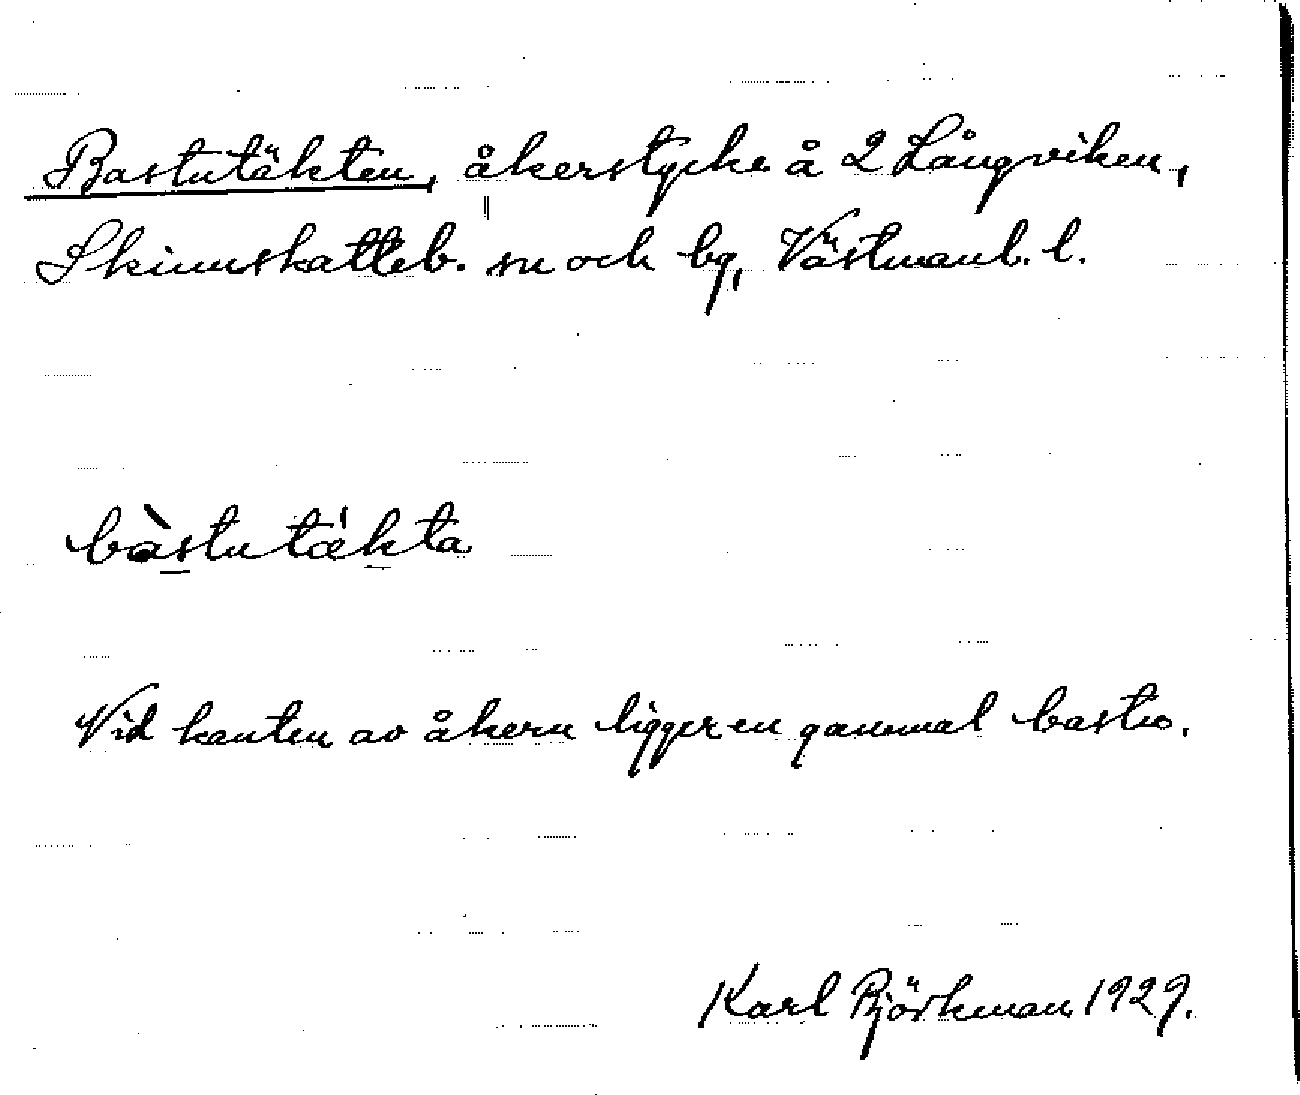 Bastutäkten, åkerstycke å 2 Långviken,
Skinnskatteb. sn och bg, Västmanl. l.
bàstutä́kta
Vid kanten av åkern ligger en gammal bastu.
Karl Björkman 1929.